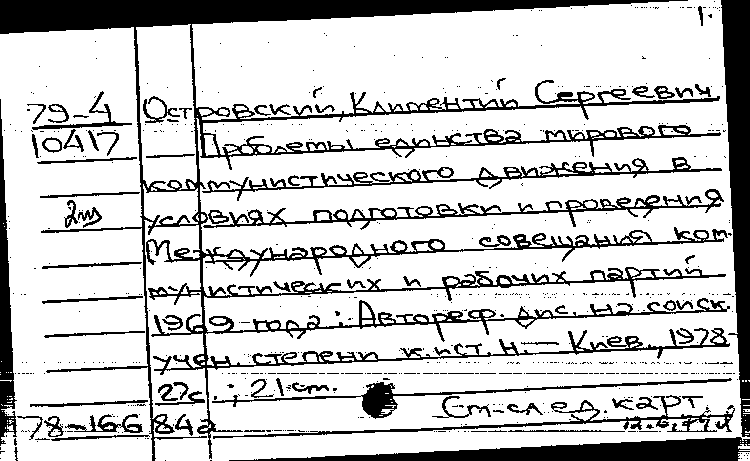 1.
79-4 Островский, Климентий Сергеевич
10417 Проблемы единства мирового
коммунистического движения в
2т условиях подготовки и проведения
Международного совещания ком-
мунистических и рабочих партий
1969 года : Автореф. дис. на соиск.
учен. степени к. ист. н. — Киев, 1978-
27с. ; 21 см.
См. след. карт.
78-166 84а 12.6.79